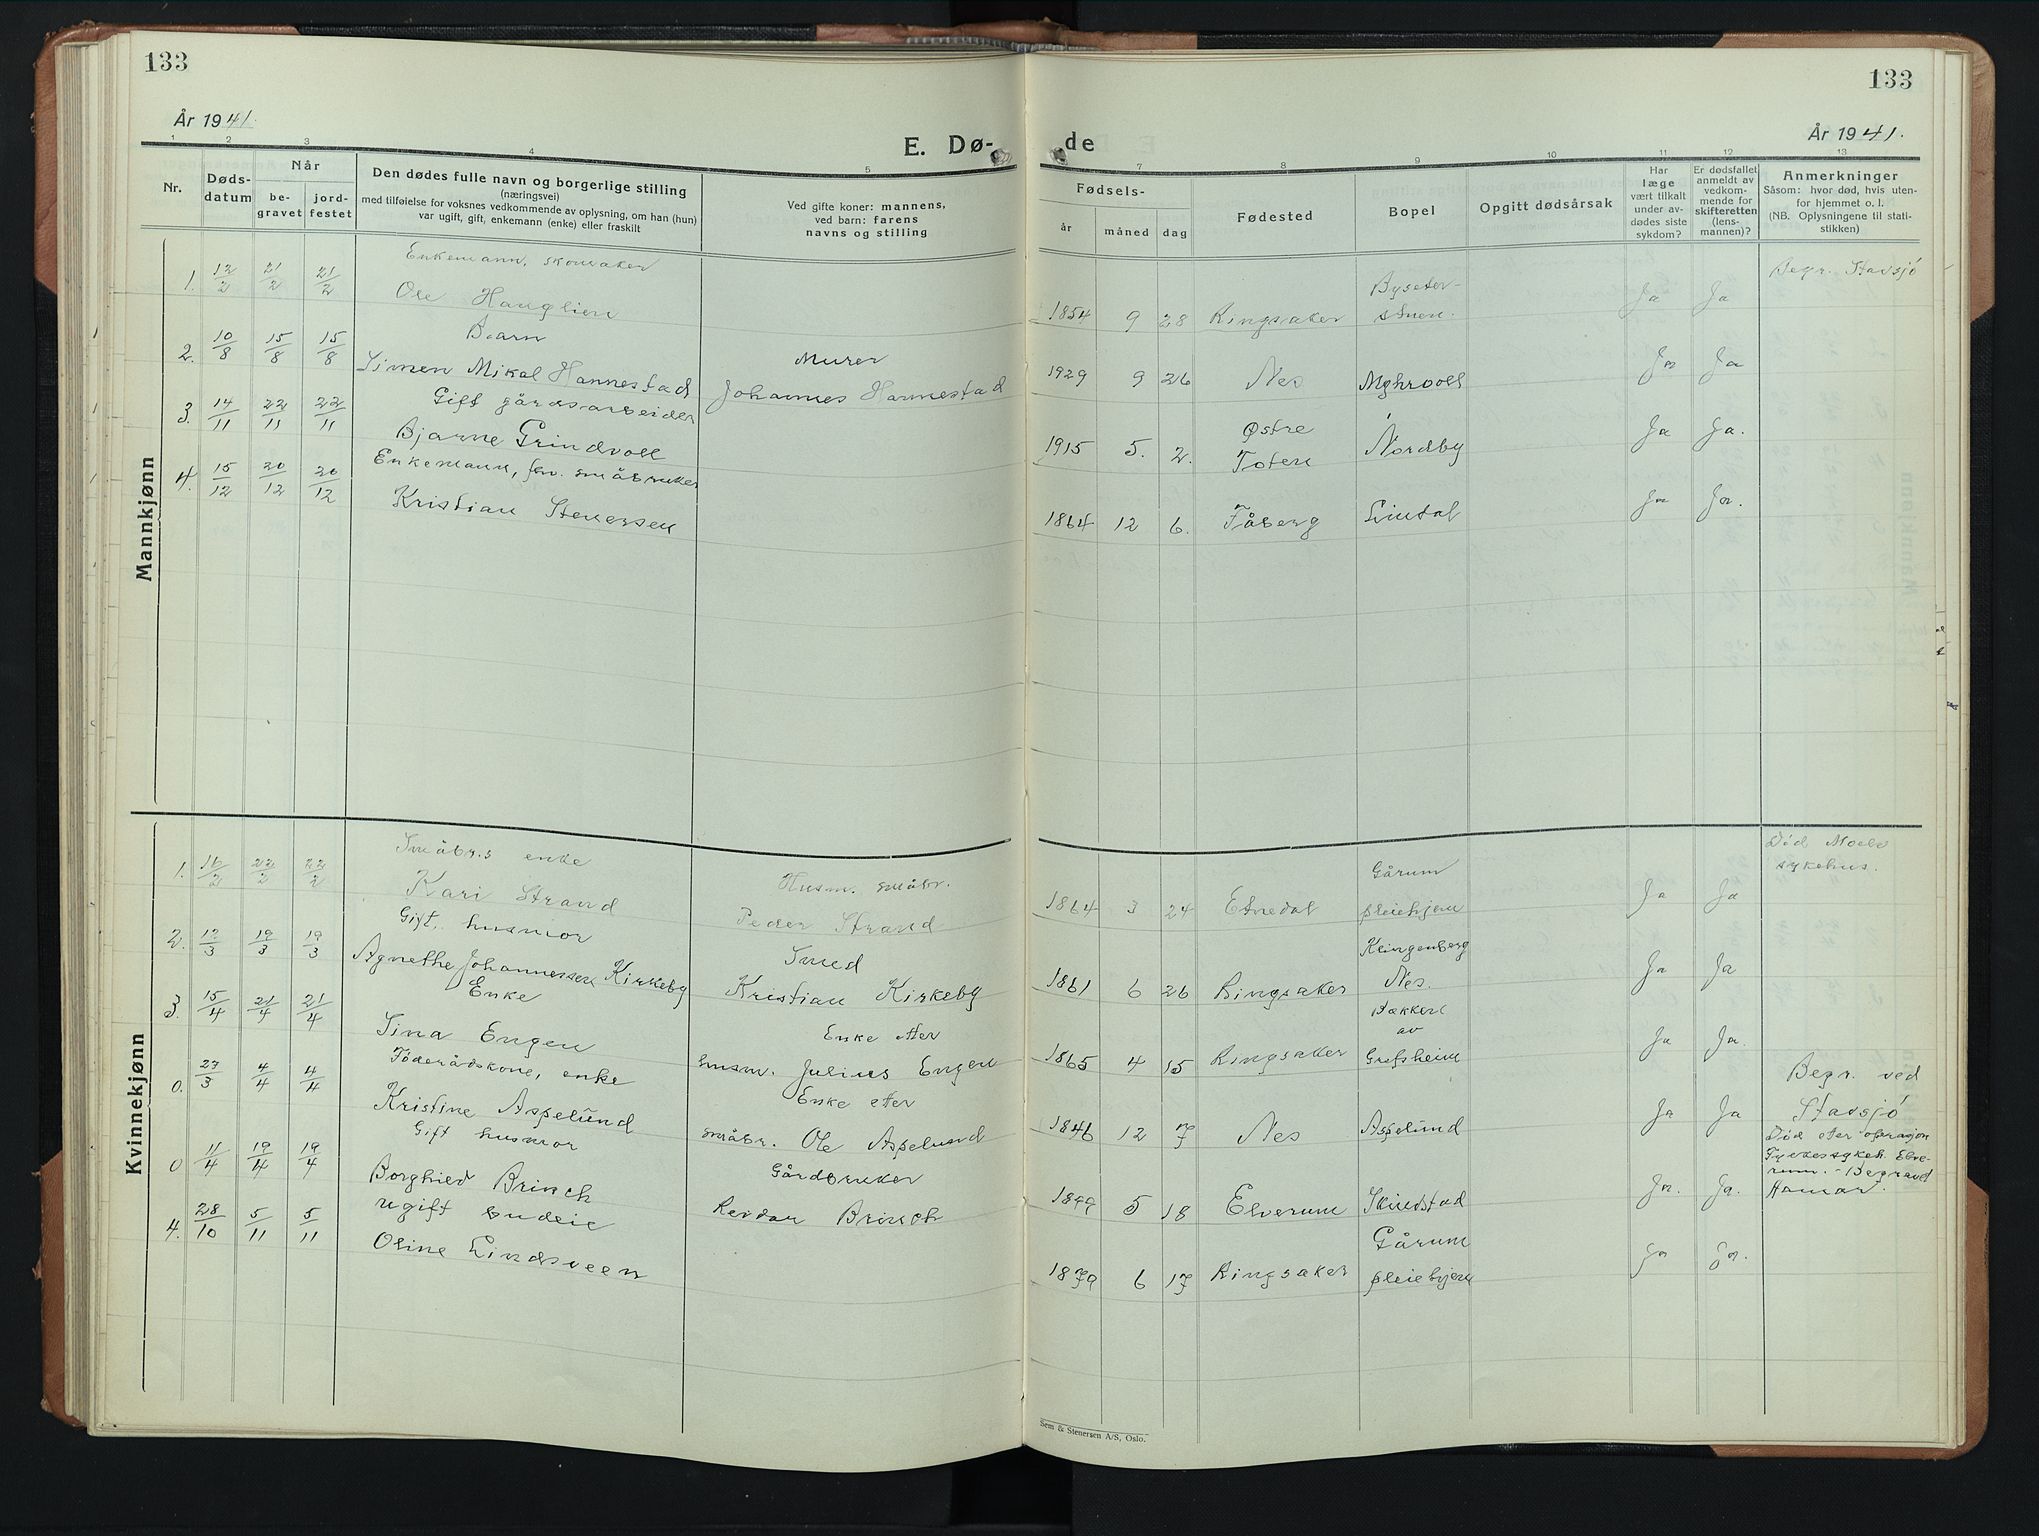 133
133
År 1941.
År 1941.
E. Døde
1 2 3 4 5 7 8 9 10 11 12 13
Nr.
Dødsdatum
Når
begravet
jordfestet
Den dødes fulle navn og borgerlige stilling
(næringsvei)
med tilføielse for voksnes vedkommende av oplysning, om han (hun)
var ugift, gift, enkemann (enke) eller fraskilt
Ved gifte koner: mannens,
ved barn: farens
navns og stilling
Fødsels-
år måned dag
Fødested
Bopel
Opgitt dødsårsak
Har
læge
vært tilkalt
under av-
dødes siste
sykdom?
Er dødsfallet
anmeldt av
vedkom-
mende for
skifteretten
(lens-
mannen)?
Anmerkninger
Såsom: hvor død, hvis uten-
for hjemmet o. l.
(NB. Oplysningene til stati-
stikken)
Mannkjønn
Enkemann, skomaker
1. 12/2 21/2 21/2 Ole Hauglien 1854 9 28 Ringsaker Bysæter-stuen. Ja Ja Begr. Stavsjø
Barn Murer
2. 10/8 15/8 15/8 Simen Mikal Hannestad Johannes Hannestad 1929 9 26 Nes Ja Ja
Gift gårdsarbeider
3. 14/11 22/11 22/11 Bjarne Grindvoll 1915 5. 2. Østre Toten Nordby Ja Ja.
Enkemann, fhv. småbruker
4. 15/12 20/12 20/12 Kristian Stenersen 1864 12 6. Fåberg Lintal Ja Ja.
Kvinnekjønn
Småbr.s enke Husm. småbr.
1. 16/2 22/2 22/2 Kari Strand Peder Strand 1864 3 24 Etnedal Gårum pleiehjem Ja Ja Død Moelv sykehus.
Gift, husmor Smed
2. 12/3 19/3 19/3 Agnethe Johannessen Kirkeby Kristian Kirkeby 1861 6 26 Ringsaker Klingenberg Nes. Ja Ja
Enke Enke etter
3. 15/4 21/4 21/4 Tina Engen husm. Julius Engen 1865 4 15 Ringsaker Bakkerl av Grefsheim Ja Ja.
Föderådskone, enke Enke etter
0. 27/3 4/4 4/4 Kristine Aspelund småbr. Ole Aspelund 1846 12 7 Nes Aspelund Ja Ja Begr. ved Stavsjø
Gift husmor Gårdbruker
0 11/4 19/4 19/4 Borghild Brinch Reidar Brinch 1899 5 18 Elverum Skinstad Ja. Ja. Død etter operasjon Fylkessykeh. Elverum. - Begravd Hamar.
ugift budeie
4. 28/10 5/11 5/11 Oline Lindsveen 1879 6 17 Ringsaker Gårum pleiehjem Ja Ja.
Sem & Stenersen A/S, Oslo.